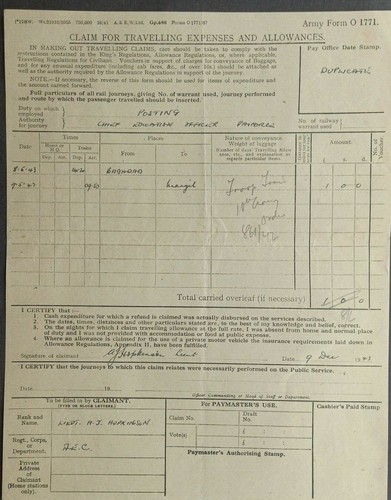 Army Form O 1771.
CLAIM FOR TRAVELLING EXPENSES AND ALLOWANCES.
IN MAKING OUT TRAVELLING CLAIMS, care should be taken to comply with the
instructions contained in the King's Regulations, Allowance Regulations, or, where applicable,
Travelling Regulations for Civilians. Vouchers in support of charges for conveyance of Baggage,
and for any unusual expenditure (including cab fares, &c., of over 10s.) should be attached as
well as the authority required by the Allowance Regulations in support of the journey.
NOTE.—If necessary, the reverse of this form should be used for items of expenditure
and the amount carried forward.
Full particulars of all rail journeys, giving No. of warrant used, journey performed
and route by which the passenger travelled should be inserted.
Pay Office Date Stamp.
DUPLICATE
Duty on which
employed
Authority
for journey
POSTING
CHIEF EDUCATION OFFICER PAIFORCE
No. of railway
warrant used
Date
Times
Home or
H.Q.
Dates
Dep.
Arr.
Dep.
Arr.
Places
From
To
Nature of conveyance
Weight of luggage
Number of days Travelling Allowance,
etc., and explanation as
regards particular items.
Amount.
£ s. d.
No. of
Voucher
BAGHDAD
1 0 0
Total carried overleaf (if necessary)
1 0 0
I CERTIFY that :—
1. Cash expenditure for which a refund is claimed was actually disbursed on the services described.
2. The dates, times, distances and other particulars stated are, to the best of my knowledge and belief, correct.
3. On the nights for which I claim travelling allowance at the full rate, I was absent from home and normal place
of duty and I was not provided with accommodation or food at public expense.
4. Where an allowance is claimed for the use of a private motor vehicle the insurance requirements laid down in
Allowance Regulations, Appendix II, have been fulfilled.
Signature of claimant AJ Hopkinson Lieut
Date 9 Dec 1943
I CERTIFY that the journeys to which this claim relates were necessarily performed on the Public Service.
Date 19
Officer Commanding or Head of Staff or Department.
To be filled in by CLAIMANT.
(TYPE OR BLOCK LETTERS.)
For PAYMASTER'S USE.
Cashier's Paid Stamp
Rank and
Name
LIEUT. A.J. HOPKINSON
Claim No.
Draft
No.
Regt., Corps,
or
Department.
A.E.C.
Vote(s)
Paymaster's Authorising Stamp.
Private
Address
of
Claimant
(Home stations
only)